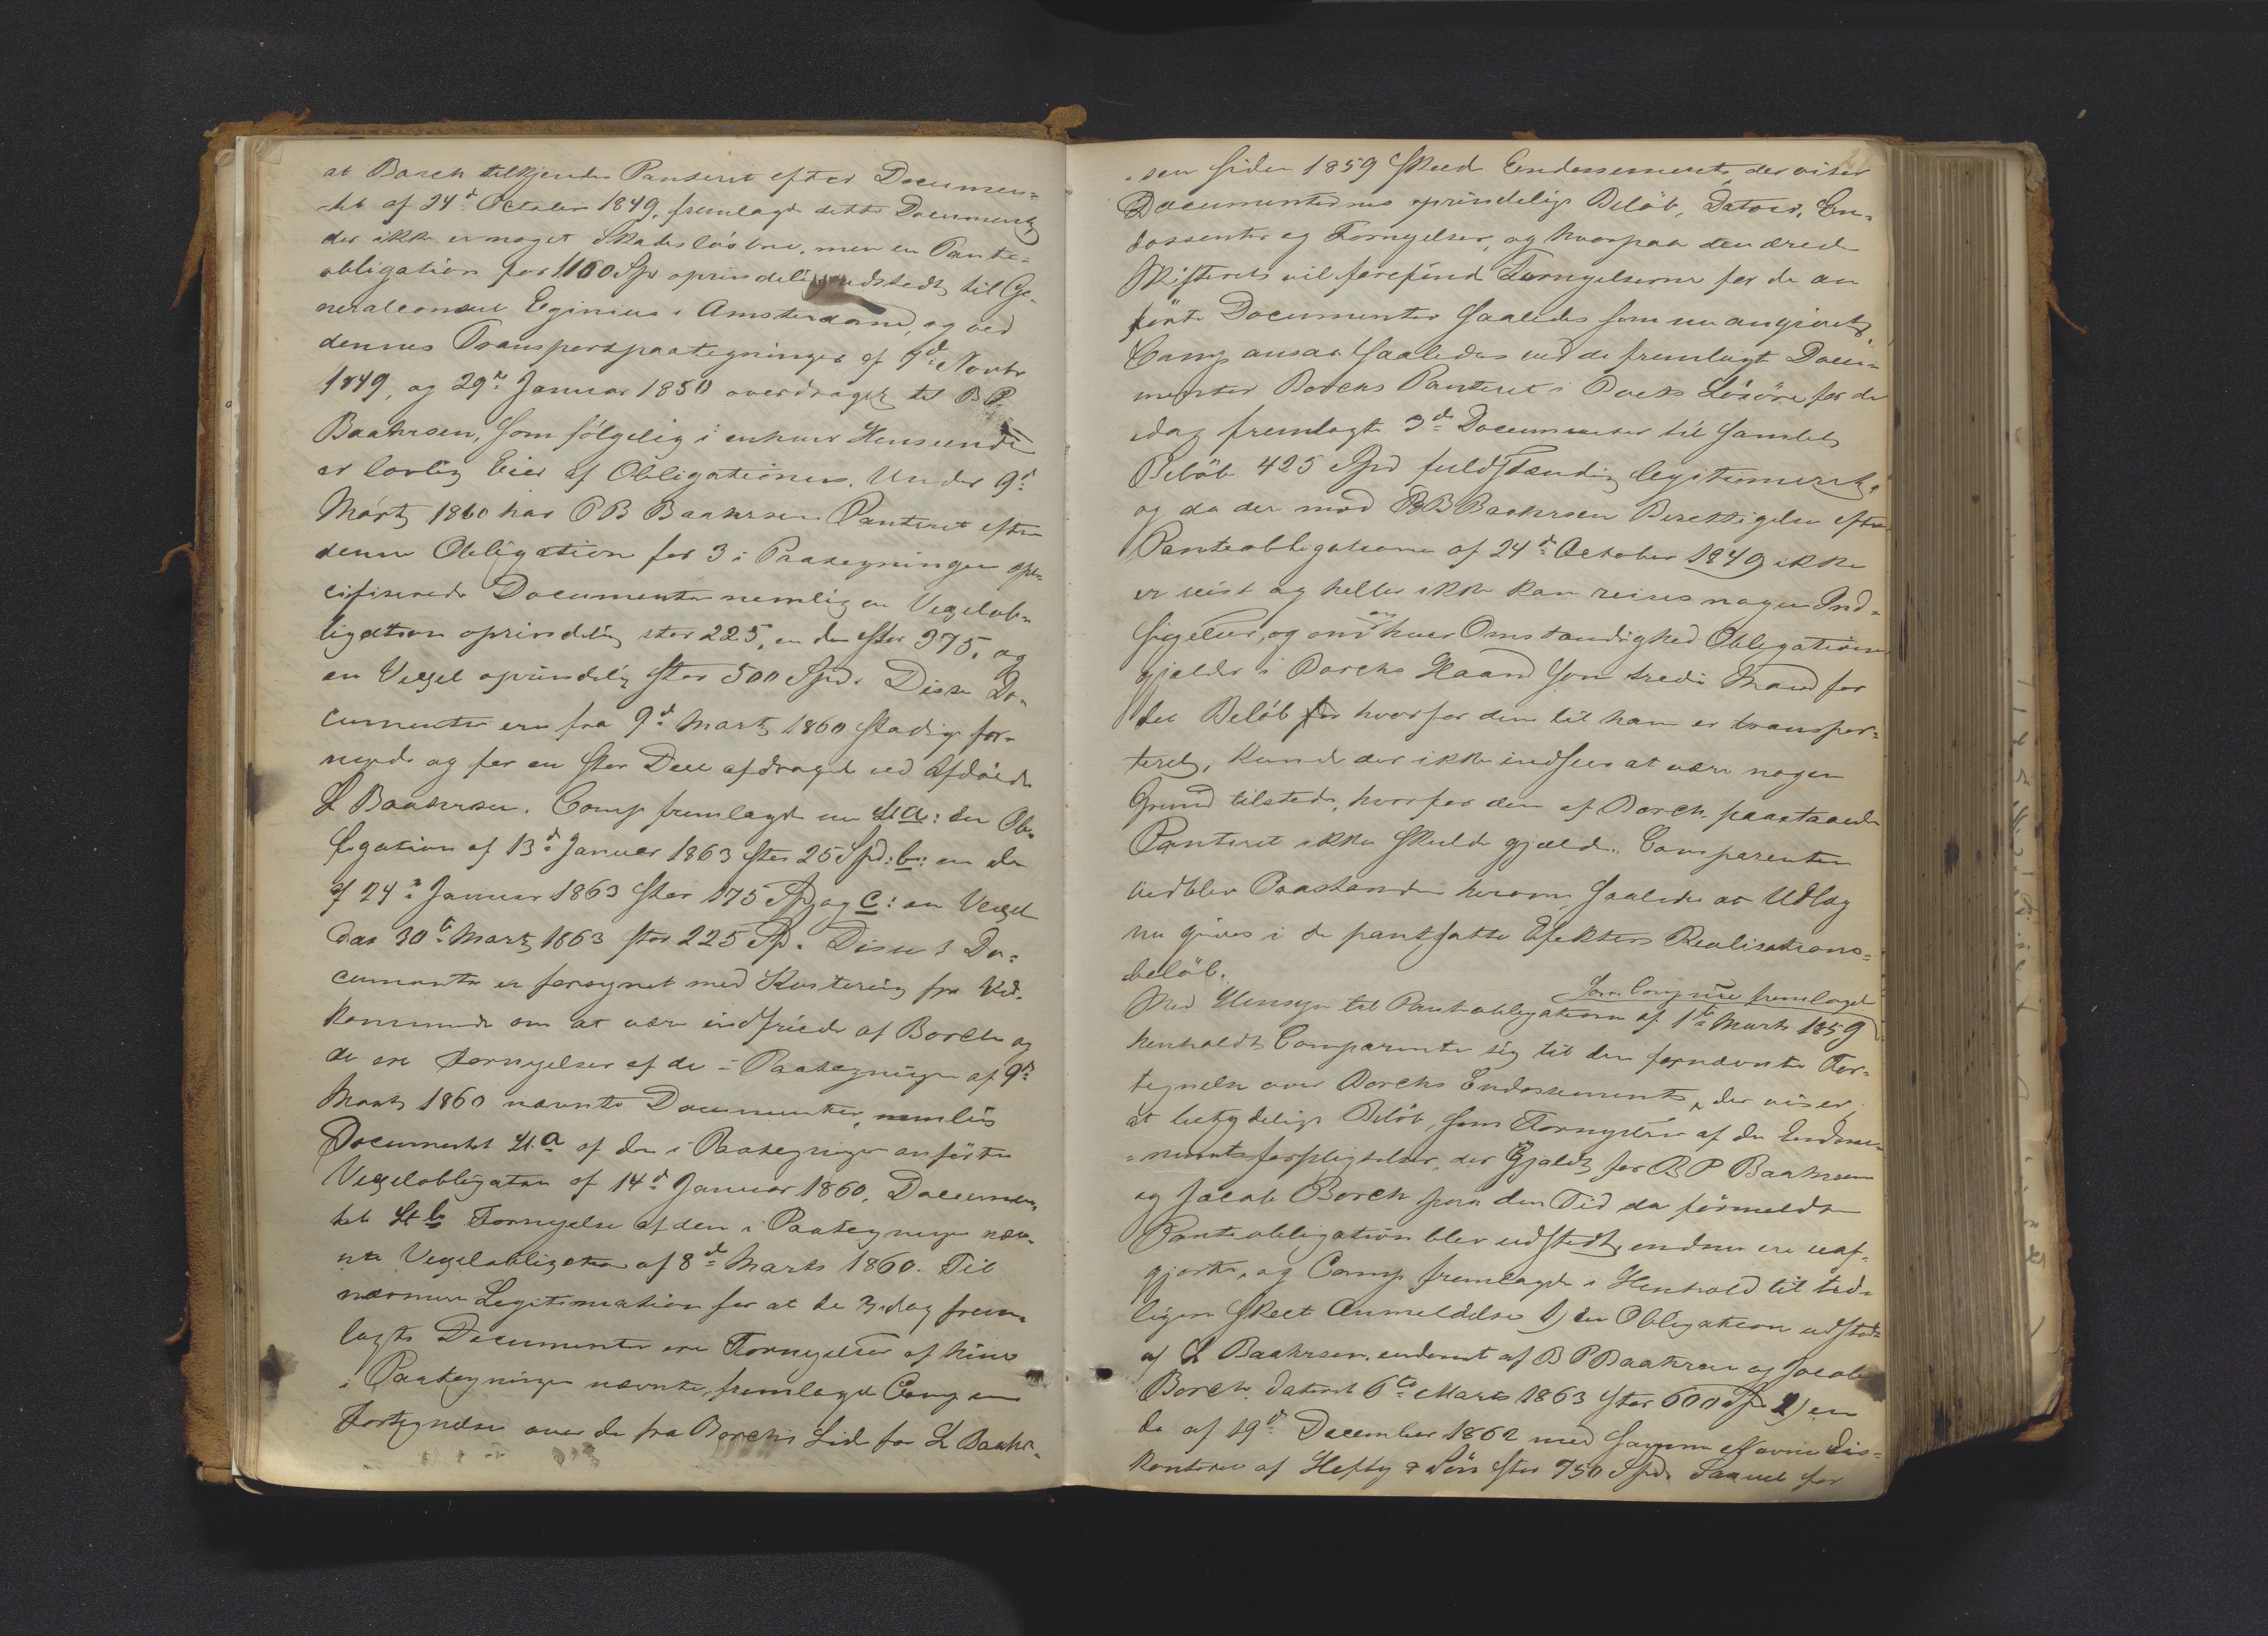 at Borch tilkjendes Panteret efter Documen-
tet af 24d October 1849, fremlagde dette Document
der ikke er noget Skadesløsbrev, men en Pante-
obligation for 1160 Spd oprindelig udstedt til Ge-
neralconsul Eginius i Amsterdam, og ved
dennes Transportpaategninger af 7d Novbr
1849, og 29d Januar 1850 overdraget til B P.
Baahrsen, som følgelig i enhver Henseende
er lovlig Eier af Obligationen. Under 9d
Marts 1860 har P B Baahrsen Panteret efter
denne Obligation for 3 i Paategningen spe-
cifiserede Documenter nemlig en Vexelob-
ligation oprindelig stor 225, en do stor 375, og
en Vexel oprindelig stor 500 Spd. Disse Do-
cumenter ere fra 9d Marts 1860 stadig for-
nyede og for en stor Deel afdraget ved Afdøde
L Baahrsen. Comp fremlagde nu Lit a: en Ob-
ligation af 13d Januar 1863 stor 25 Spd: b: en do
af 24d Januar 1863 stor 175 Spd og c: en Vexel
dat 30te Marts 1863 stor 225 Sp. Disse 3 Do-
cumenter er forsynet med Kvitering fra Ved-
kommende om at være indfriede af Borch og
de ere Fornyelser af de i Paategningen af 9d
Marts 1860 nævnte Documenter, nemlig
Documentet Lt. a af den i Paategningen anførte
Vexelobligation af 14d Januar 1860. Documen-
tet Lt b Fornyelse af den i Paategningen næv-
nte Vexelobligation af 8d Marts 1860. Til
nærmere Legitimation for at de 3 idag frem-
lagte Documenter ere Fornyelser af hine
i Paategningen nævnte, fremlagde Comp en
Fortegnelse over de fra Borchs Side for L Baahr-
sen siden 1859 skeede Endossements, der viser
Documenternes oprindelige Beløb, Datoer, En-
dossenter og Fornyelser, og hvorpaa den ærede
Skifteret vil forefinde Fornyelserne for de an
førte Documenter saaledes som nu angivet.
Comp ansaa saaledes ved de fremlagte Docu-
menter Borchs Panteret i Boets Løsøre for de
idag fremlagte 3de Documenter til samlet
Beløb 425 Spd fuldstændig legitimeret,
og da der mod P B Baahrsen Berettigelse efter
Panteobligationen af 24d October 1849 ikke
er reist og heller ikke kan reises nogen Ind-
sigelse, og en hver Omstændighed Obligationen
gjælder i Borchs Haand som tredie Mand for
det Beløb for hvorfor den til ham er transpor-
teret, kunde der ikke indsees at være nogen
Grund tilstede, hvorfor den af Borch paastaaede
Panteret ikke skulde gjælde. Comparenten
vedblev Paastanden herom saaledes at Udlæg
nu gives i de pantsatte Effekters Realisations-
beløb.
som Comp nu fremlagde
Med Hensyn til Panteobligationen af 1te Marts 1859
henholdt Comparenten sig til den fornævnte For-
tegnelse over Borchs Endossements, der viser
at betydelige Beløb, som Fornyelser af de Endosse-
mentsforpligtelser, der gjaldt for B P Baahrsen
og Jacob Borch paa den Tid da førmeldte
Panteobligation blev udstedt, endnu ere uaf-
gjorte, og Comp fremlagde i Henhold til tid-
ligere skeet Anmeldelse 1) en Obligation udstedt
af L Baahrsen, endosseret af B P Baahrsen og Jacob
Borch. dateret 6te Marts 1863 stor 600 Sp 2) en
do af 19d December 1862 med samme Navne dis-
konteret af Hefty & Søn stor 750 Spd. Saavel for